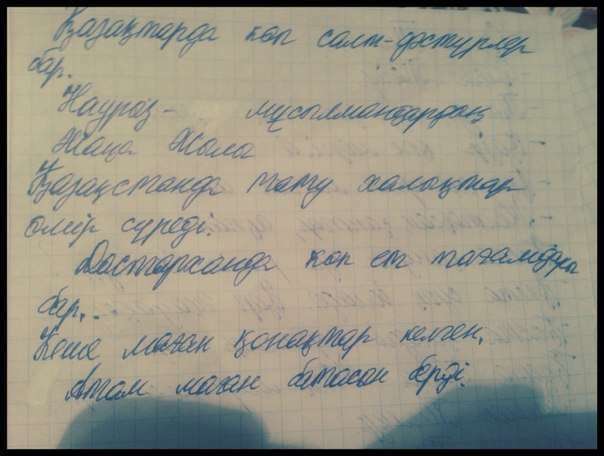 Қазақтарда көп салт-дәстүрлер
бар.
Наурыз - мұсылмандардың
Жаңа Жылы
Қазақстанда тату халықтар
өмір сүреді.
Дастарханда көп ет тағамдары
бар.
Кеше маған қонақтар келген.
Атам маған батасын берді.